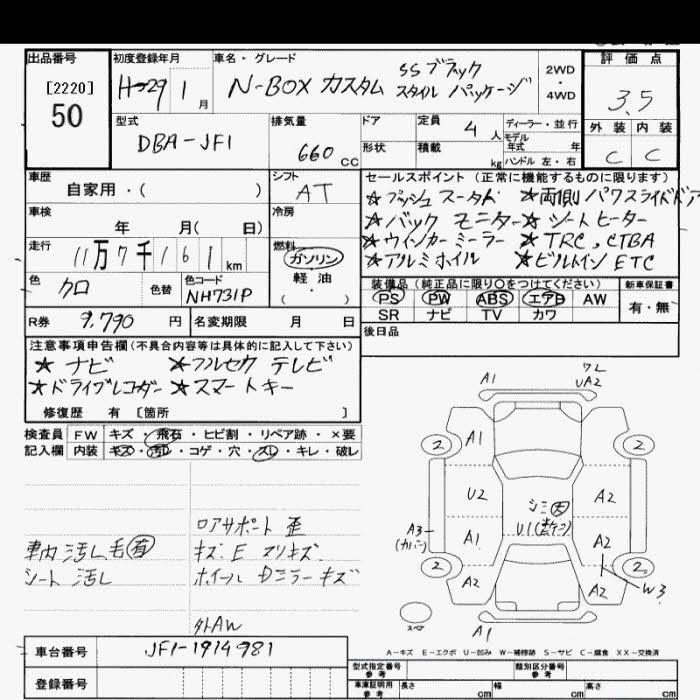 出品番号
[2220]
50
初度登録年月
H-29 1 月
車名・グレード
N-BOX カスタム SSブラック
スタイル パッケージ
2WD
・
4WD
評価点
3.5
外装 内装
C C
型式
DBA-JF1
排気量
660 cc
ドア
形状
定員 4 人
積載 kg
ディーラー・並行
モデル
年式 年
ハンドル 左・右
車歴
自家用・( )
シフト
AT
車検
年 月( 日)
冷房
走行
11万7千161 km
燃料
ガソリン
軽油
( ・ )
色
クロ
色替
色コード
NH731P
R券 9,790 円
名変期限 月 日
セールスポイント(正常に機能するものに限ります)
☆プッシュスータト ☆両側パワスライドドア
☆バックモニター ☆シートヒーター
☆ウインカーミーラー ☆TRC,CTBA
☆アルミホイル ☆ビルトインETC
装備品(純正品に限り○をつけてください)
新車保証書
PS PW ABS エアB AW
SR ナビ TV カワ
有・無
後日品
注意事項申告欄(不具合内容等は具体的に記入して下さい)
☆ナビ ☆フルセグテレビ
☆ドライブレコダー ☆スマートキー
修復歴 有 [箇所 ]
検査員 FW キズ・飛石・ヒビ割・リペア跡・×要
記入欄 内装 キズ・汚レ・コゲ・穴・スレ・キレ・破レ
ロアサポート 歪
車内汚レ毛有 キズ、E マリキズ
シート汚レ ホイール Dミラーキズ
外AW
A1
ワレ
UA2
2
A1
2
U2
シミ大
U1
A2
A3
(カバー)
A1
A2
2
A2
A2
2
W3
スペア
A1
A-キズ E-エクボ U-凹み W-補修跡 S-サビ C-腐食 XX-交換済
車台番号 JF1-1914981
登録番号
型式指定番号
参考
類別区分番号
参考
車庫証明用
参考
長さ cm 幅 cm 高さ cm